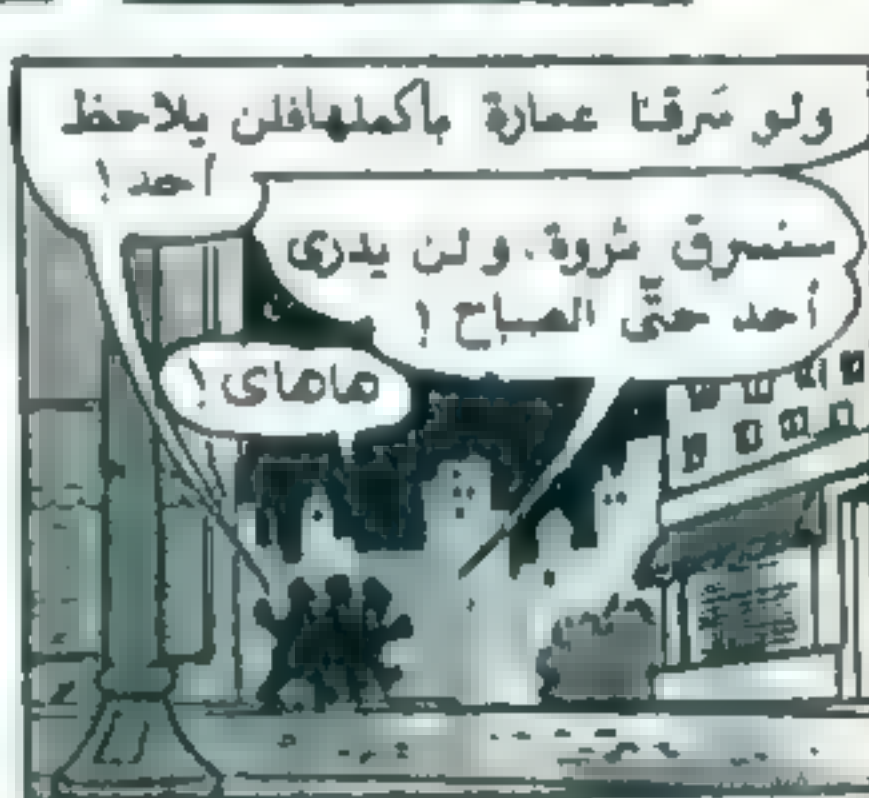 ولو سَرقنا عمارة بأكملهافلن يلاحظ
أحد !
سنسرق ثروة ولن يدرى
أحد حتَّى الصباح !
هاهاى !